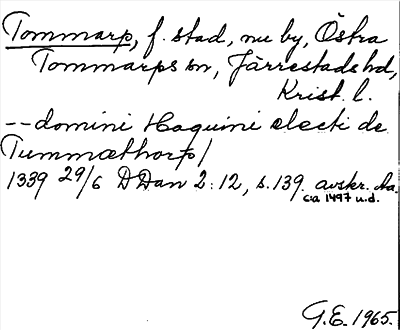 Tommarp, f. stad, nu by, Östra
Tommarps sn, Järrestads hd,
Krist. l.
--domini Haquini electi de
Tummæthorp/
1339 29/6 DDan 2:12, s.139. avskr. ca
ca 1497 u.d.
G.E. 1965.